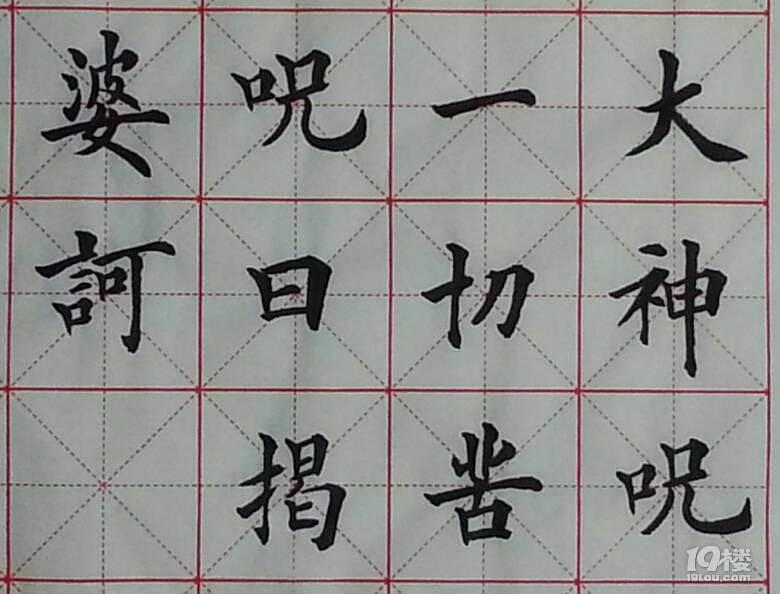 大神呪
一切苦
呪曰揭
婆訶
19楼
19lou.com